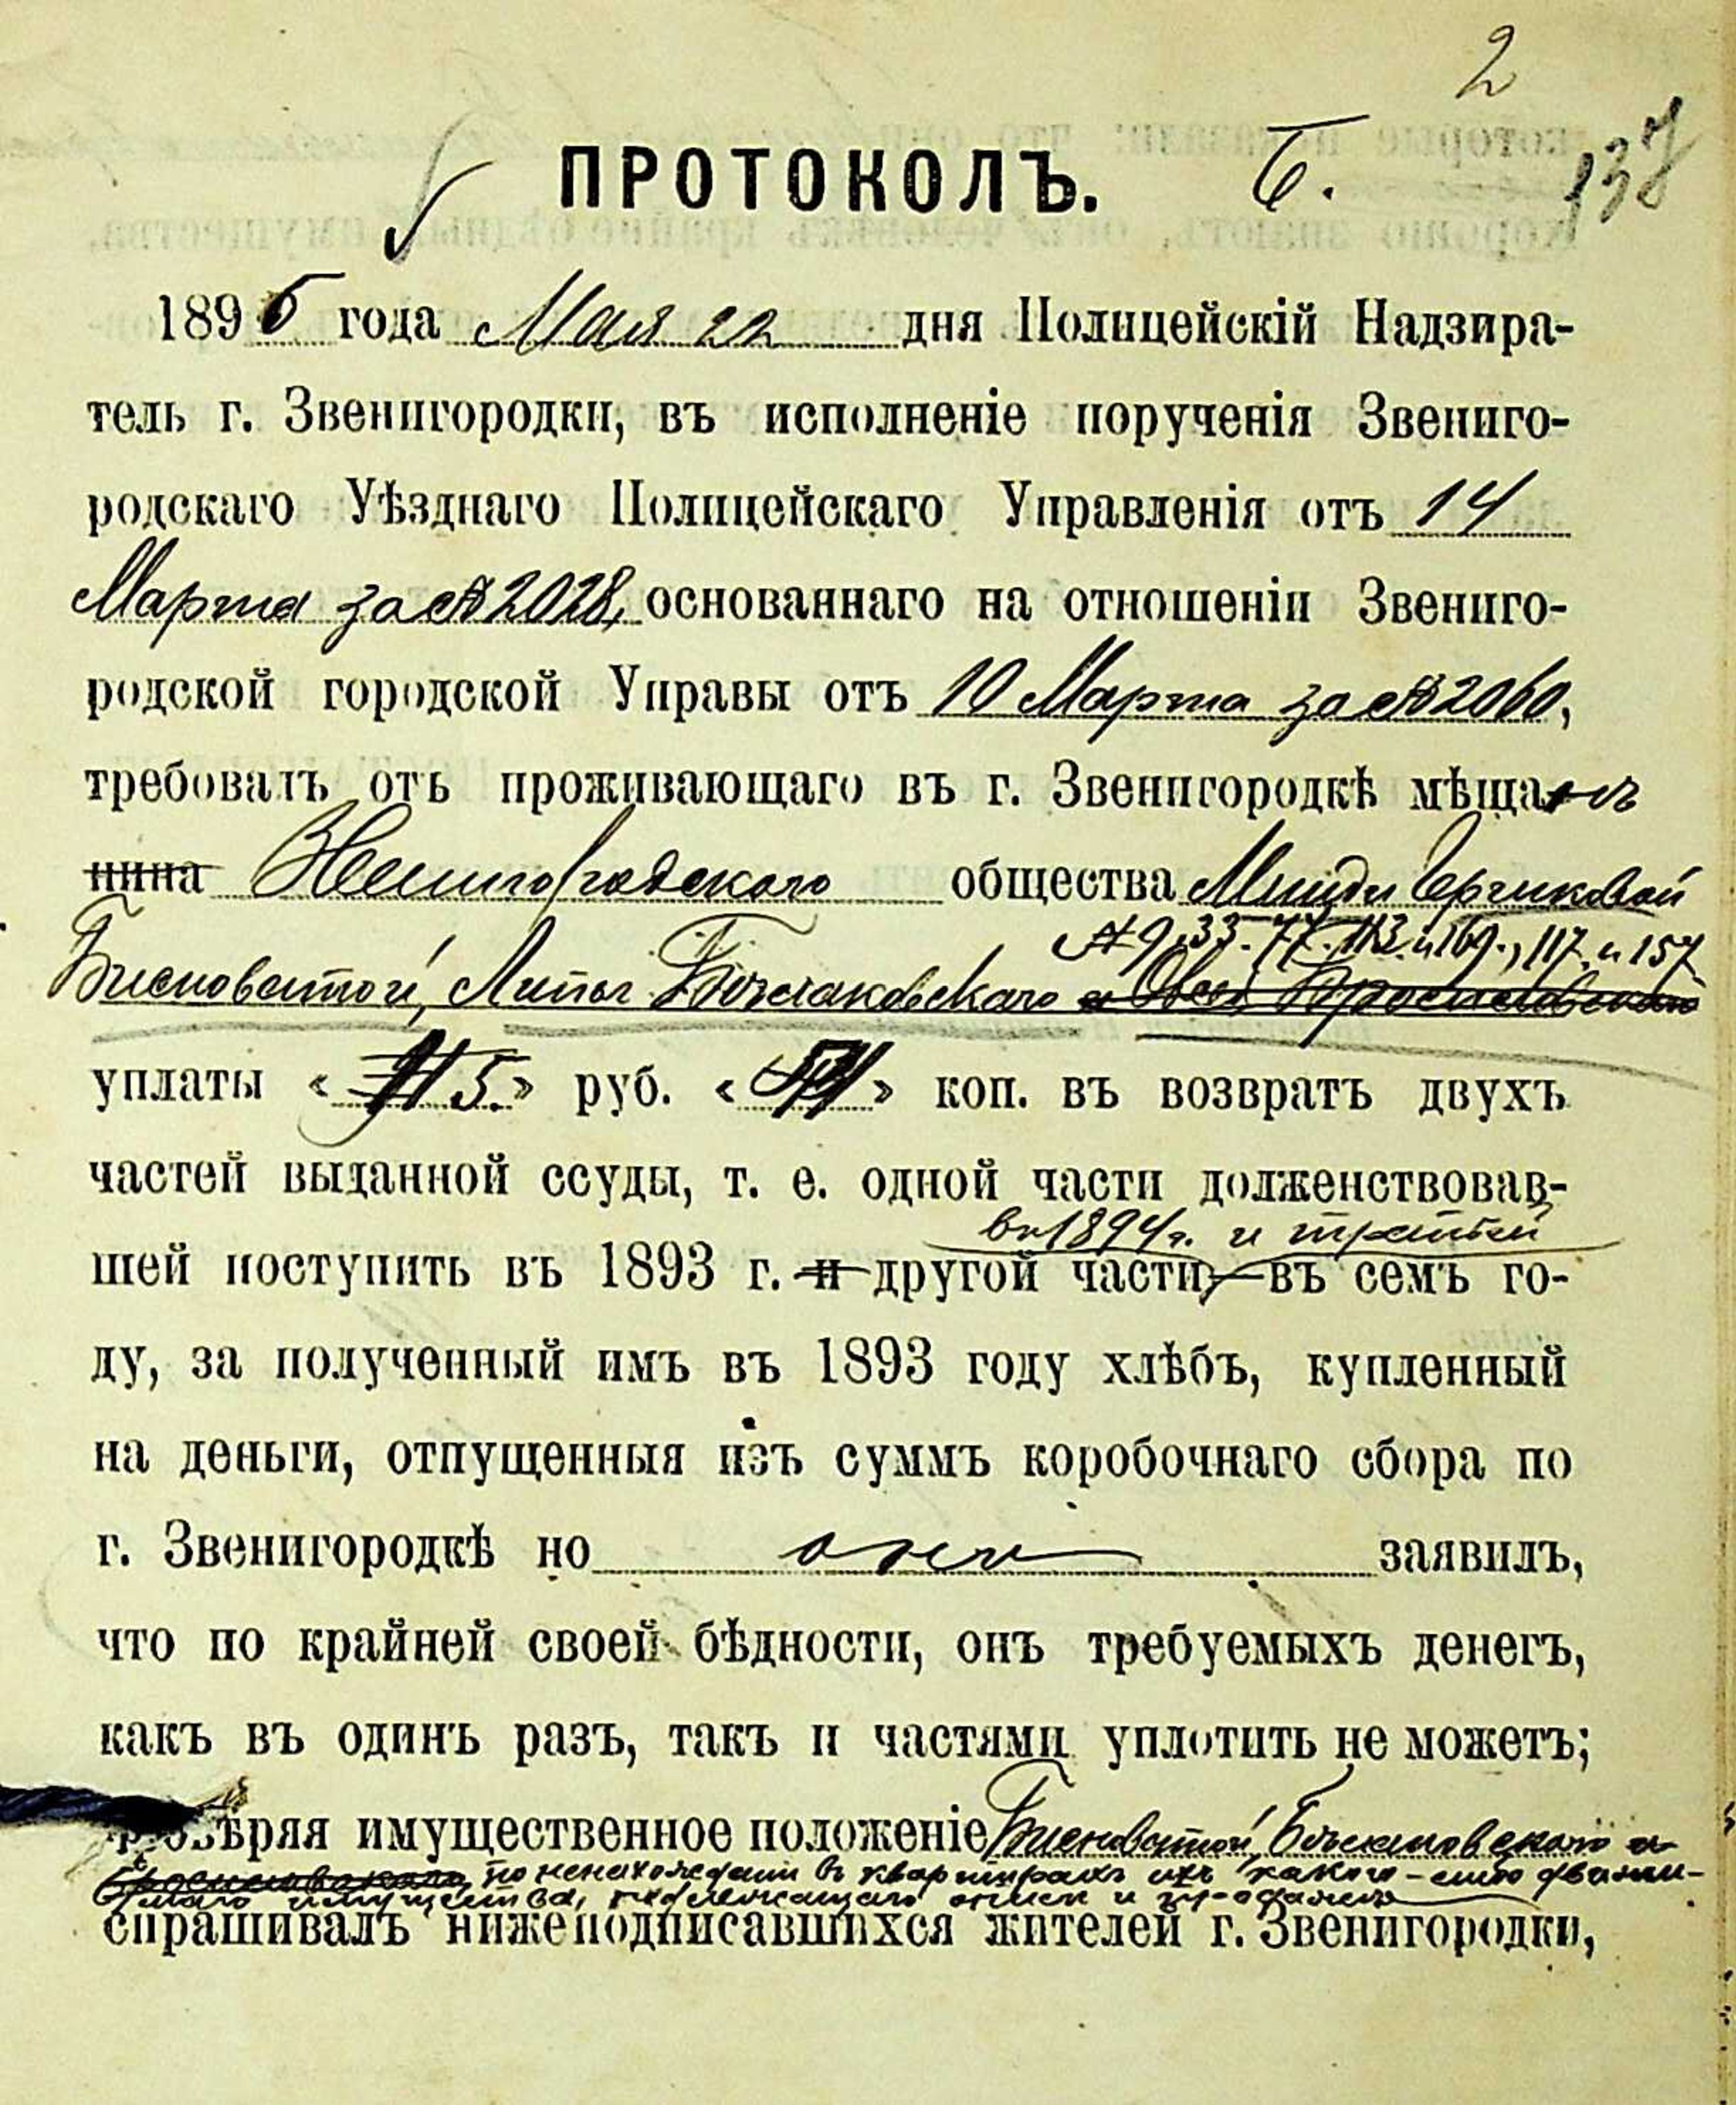 2
ПРОТОКОЛЪ. Б. 137
1895 года Мая 22 дня Полицейскій Надзира-
тель г. Звенигородки, въ исполненіе порученія Звениго-
родскаго Уѣзднаго Полицейскаго Управленія отъ 14
Марта за № 2028, основаннаго на отношеніи Звениго-
родской городской Управы отъ 10 Марта за № 2060,
требовалъ отъ проживающаго въ г. Звенигородкѣ мѣщанъ
нина Звенигородского общества Минди
№ 9, 33. 77. 113 и 169., 117 и 157
Бисноватой, Липы
уплаты « 5. » руб. « » коп. въ возвратъ двухъ
частей выданной ссуды, т. е. одной части долженствовав-
въ 1894 г. и третьей
шей поступить въ 1893 г. и другой части, въ семъ го-
ду, за полученный имъ въ 1893 году хлѣбъ, купленный
на деньги, отпущенныя изъ суммъ коробочнаго сбора по
г. Звенигородкѣ но они заявилъ,
что по крайней своей бѣдности, онъ требуемыхъ денегъ,
какъ въ одинъ разъ, такъ и частями уплотить не можетъ;
провѣряя имущественное положеніе Бисноватой, и
по ненахождѣнии въ квартирахъ ихъ какого-либо движи-
маго имущества, подлежащаго описи и продажѣ
спрашивалъ нижеподписавшихся жителей г. Звенигородки,